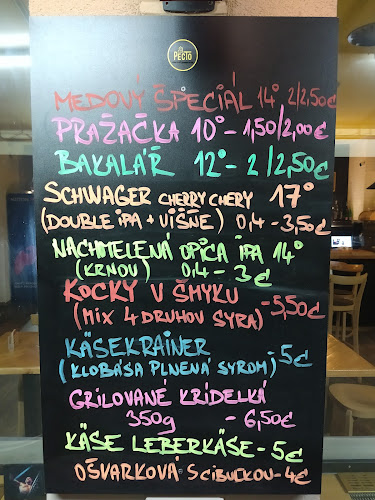 PECTO
MEDOVÝ ŠPECIÁL 14° 2/2,50€
PRAŽAČKA 10° - 1,50/2,00€
BAKALÁŘ 12° - 2/2,50€
SCHWAGER CHERRY CHERY 17°
(DOUBLE IPA + VIŠNE) 0,4 - 3,50€
NACHMELENÁ OPICA IPA 14°
(KRNOV) 0,4 - 3€
KOCKY V ŠMYKU - 5,50€
(MIX 4 DRUHOV SYRA)
KÄSEKRAINER - 5€
(KLOBÁSA PLNENÁ SYROM)
GRILOVANÉ KRIDELKÁ
350g - 6,50€
KÄSE LEBERKÄSE - 5€
OŠVARKOVÁ S CIBUĽKOU - 4€